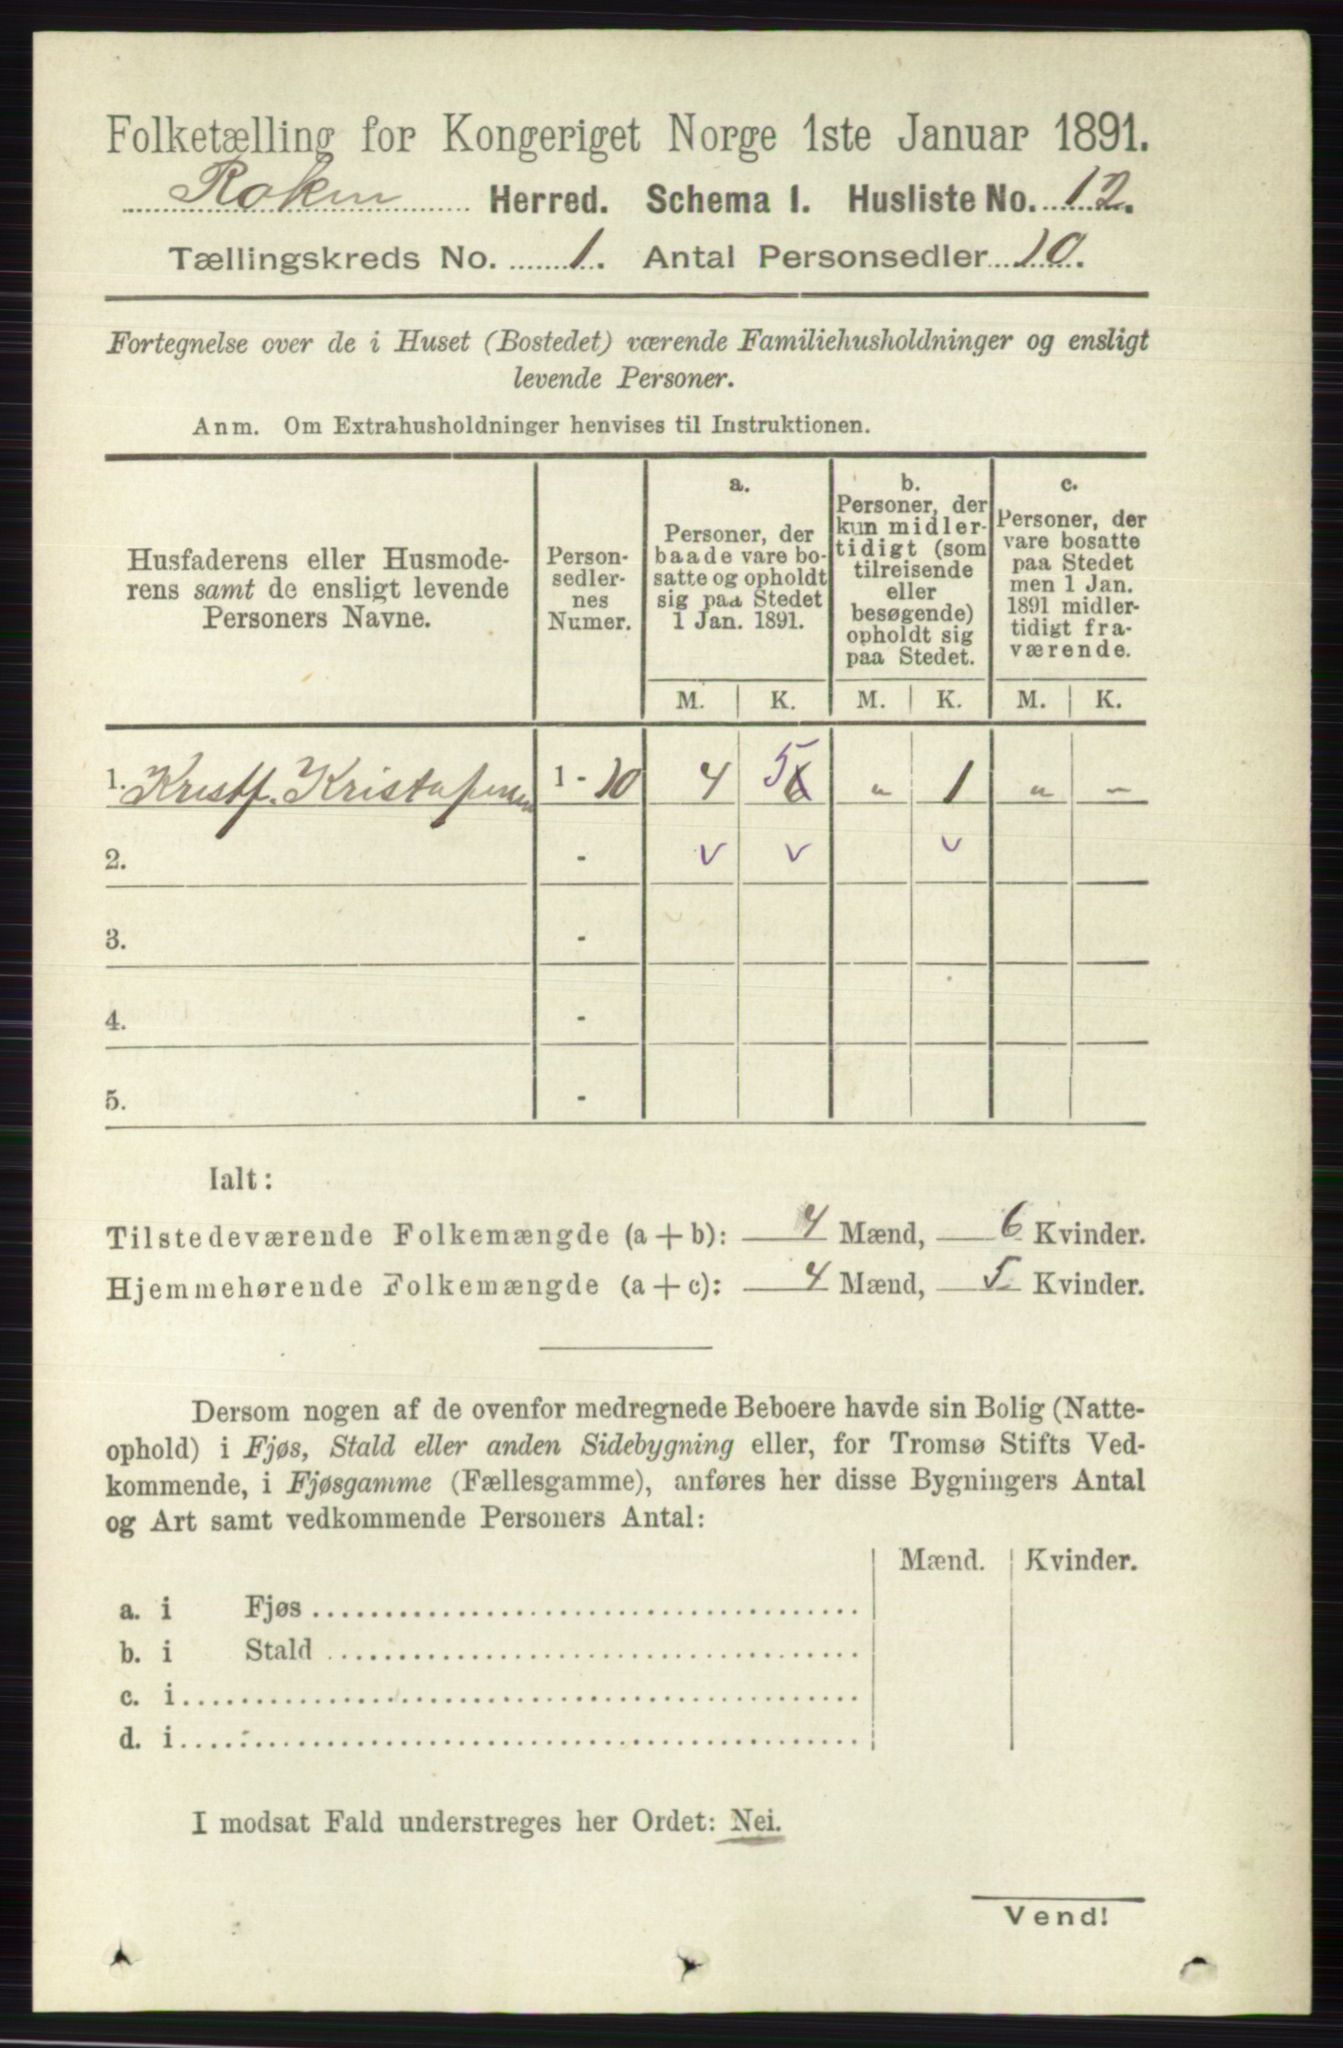 Folketælling for Kongeriget Norge 1ste Januar 1891.
Røken Herred. Schema 1. Husliste No. 12.
Tællingskreds No. 1. Antal Personsedler 10.
Fortegnelse over de i Huset (Bostedet) værende Familiehusholdninger og ensligt
levende Personer.
Anm. Om Extrahusholdninger henvises til Instruktionen.
Husfaderens eller Husmode-
rens samt de ensligt levende
Personers Navne.
Person-
sedler-
nes
Numer.
a.
Personer, der
baade vare bo-
satte og opholdt
sig paa Stedet
1 Jan. 1891.
b.
Personer, der
kun midler-
tidigt (som
tilreisende
eller
besøgende)
opholdt sig
paa Stedet.
c.
Personer, der
vare bosatte
paa Stedet
men 1 Jan.
1891 midler-
tidigt fra-
værende.
M. K. M. K. M. K.
1. Kristf. Kristofersen 1 - 10 4 5 6 " 1 " -
2. - v v v
3. -
4. -
5. -
Ialt:
Tilstedeværende Folkemængde (a+b): 4 Mænd, 6 Kvinder.
Hjemmehørende Folkemængde (a+c): 4 Mænd, 5 Kvinder.
Dersom nogen af de ovenfor medregnede Beboere havde sin Bolig (Natte-
ophold) i Fjøs, Stald eller anden Sidebygning eller, for Tromsø Stifts Ved-
kommende, i Fjøsgamme (Fællesgamme), anføres her disse Bygningers Antal
og Art samt vedkommende Personers Antal:
Mænd. Kvinder.
a. i Fjøs
b. i Stald
c. i
d. i
I modsat Fald understreges her Ordet: Nei.
Vend!